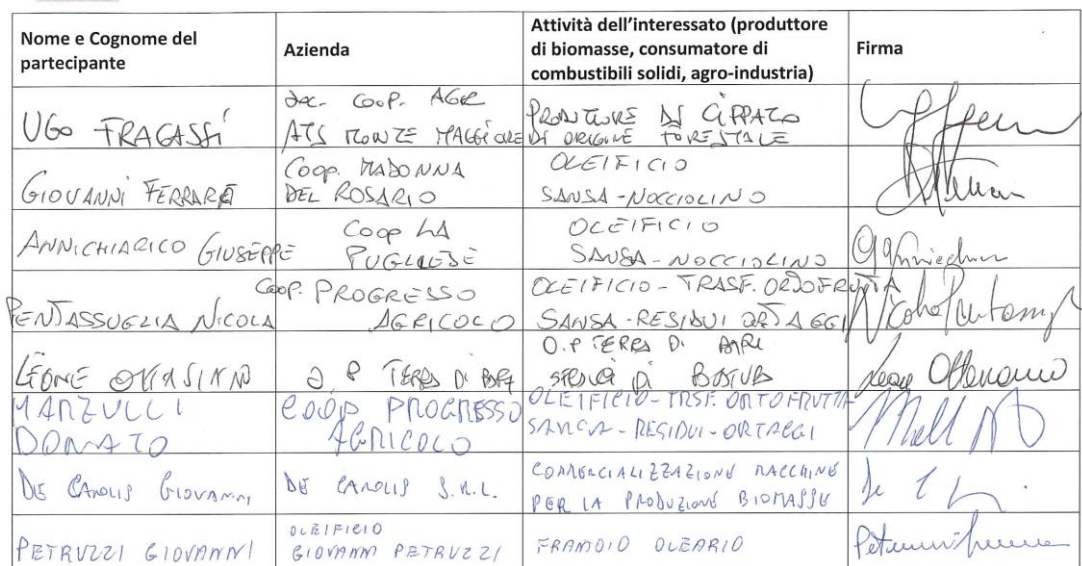 Nome e Cognome del partecipante
Azienda
Attività dell'interessato (produttore di biomasse, consumatore di combustibili solidi, agro-industria)
Firma
UGO FRAGASSI
Soc. COOP. AGR
ATS MONTE MAGGIORE
PRODUTTORE DI CIPPATO
DI ORIGINE FORESTALE
GIOVANNI FERRARE
COOP. MADONNA
DEL ROSARIO
OLEIFICIO
SANSA-NOCCIOLINO
ANNICHIARICO GIUSEPPE
COOP LA
PUGLIESE
OLEIFICIO
SANSA-NOCCIOLINO
PENTASSUGLIA NICOLA
COOP. PROGRESSO
AGRICOLO
OLEIFICIO - TRASF. ORTOFRUTTA
SANSA-RESIDUI ORTAGGI
Nicola
LEONE
O P TERRA DI BARI
O.P TERRA DI BARI
Leone
MARZULLI
DONATO
COOP PROGRESSO
AGRICOLO
OLEIFICIO-TRSF. ORTOFRUTTA
SANSA-RESIDUI-ORTAGGI
DE CAROLIS GIOVANNI
DE CAROLIS S.R.L.
COMMERCIALIZZAZIONE MACCHINE
PER LA PRODUZIONE BIOMASSE
PETRUZZI GIOVANNI
OLEIFICIO
GIOVANNI PETRUZZI
FRANTOIO OLEARIO